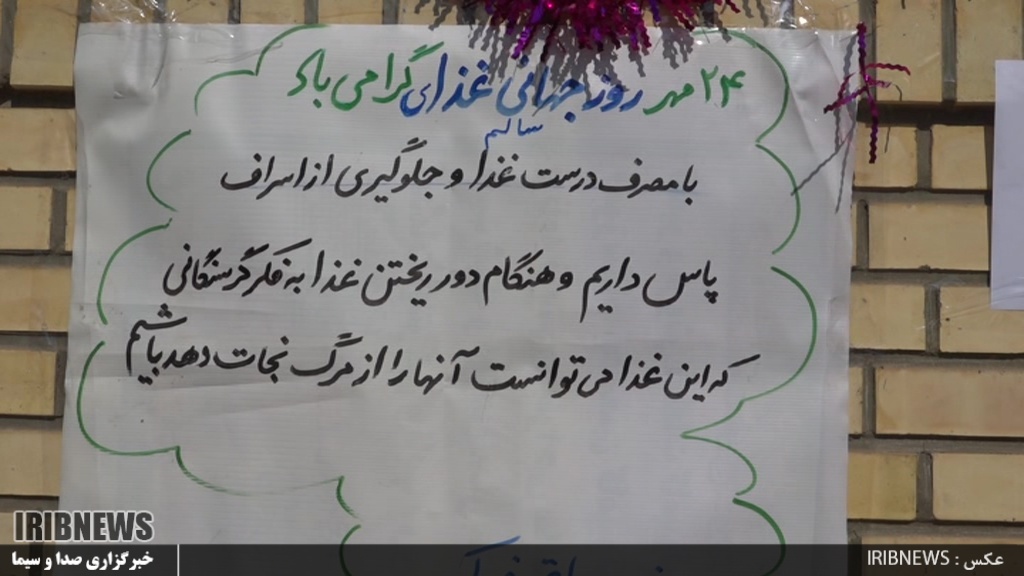 ۲۴ مهر روز جهانی غذای گرامی باد
سالم
با مصرف درست غذا و جلوگیری از اسراف
پاس داریم و هنگام دور ریختن غذا به فکر گرسنگانی
که این غذا می توانست آنها را از مرگ نجات دهد باشیم
IRIBNEWS
خبرگزاری صدا و سیما
عکس : IRIBNEWS